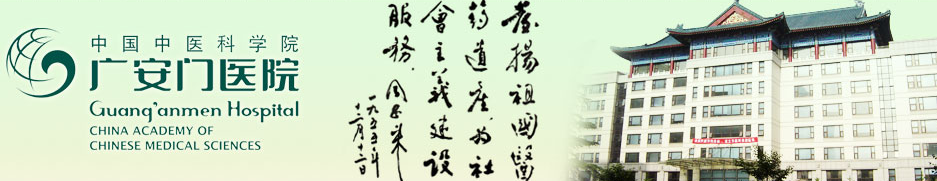 中国中医科学院
广安门医院
Guang'anmen Hospital
CHINA ACADEMY OF
CHINESE MEDICAL SCIENCES
發揚祖國醫
药遺產为社
會主義建設
服務。周恩来
一九五五年
十二月十二日